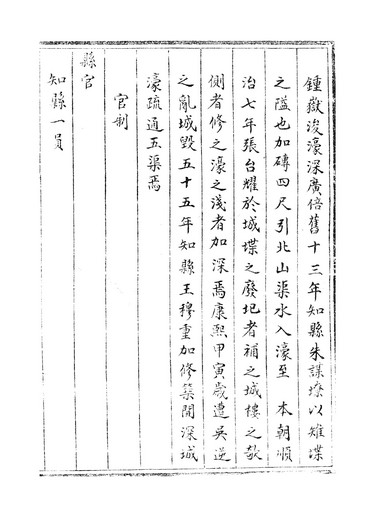 鍾嶽浚濠深廣倍舊十三年知縣朱謀㙔以雉堞
之隘也加磚四尺引北山渠水入濠至 本朝順
治七年張台耀於城堞之廢圮者補之城樓之欹
側者修之濠之淺者加深焉康熙甲寅歲遭吳逆
之亂城毀五十五年知縣王穆重加修築開深城
濠疏通五渠焉
官制
縣官
知縣一員